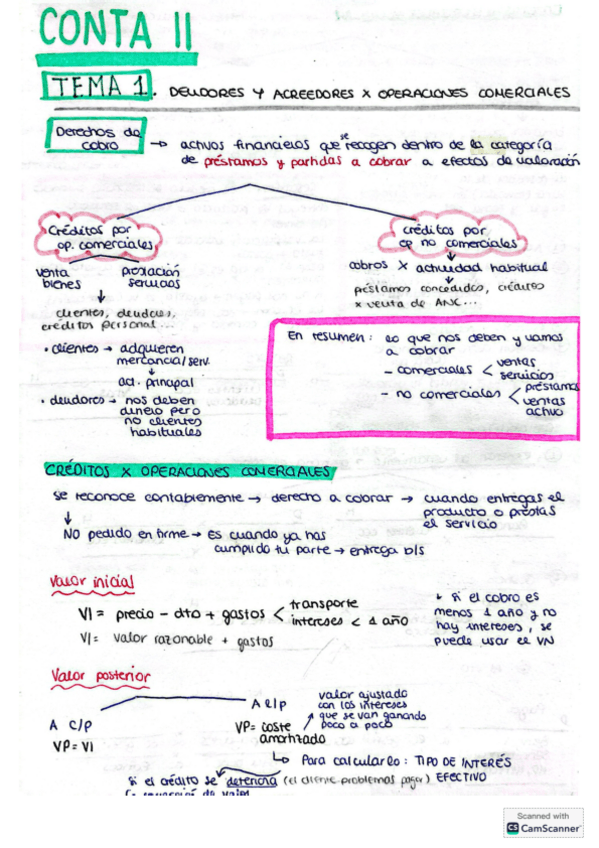 CONTA II
TEMA 1. DEUDORES Y ACREEDORES X OPERACIONES COMERCIALES
Derechos de cobro → activos financieros que se recogen dentro de la categoría
de préstamos y partidas a cobrar a efectos de valoración
Créditos por
op. comerciales
venta bienes
prestación servicios
↓
clientes, deudores,
créditos personal...
• clientes → adquieren
mercancia/serv.
↓
act. principal
• deudores → nos deben
dinero pero
no clientes
habituales
créditos por
op no comerciales
↓
cobros X actividad habitual
↓
préstamos concedidos, créditos
x venta de ANC...
En resumen: lo que nos deben y vamos
a cobrar
- comerciales < ventas
servicios
- no comerciales < préstamos
ventas
activo
CRÉDITOS X OPERACIONES COMERCIALES
se reconoce contablemente → derecho a cobrar → cuando entregas el
producto o prestas
el servicio
↓
NO pedido en firme → es cuando ya has
cumplido tu parte → entrega b/s
Valor inicial
VI = precio - dto + gastos < transporte
intereses < 1 año
VI= valor razonable + gastos
si el cobro es
menos 1 año y no
hay intereses, se
puede usar el VN
Valor posterior
A C/P
VP = VI
A L/P
VP= coste
amortizado
valor ajustado
con los intereses
que se van ganando
poco a poco
Para calcularlo: TIPO DE INTERÉS
EFECTIVO
si el crédito se deteriora (el cliente problemas pagar)
Scanned with
CS CamScanner